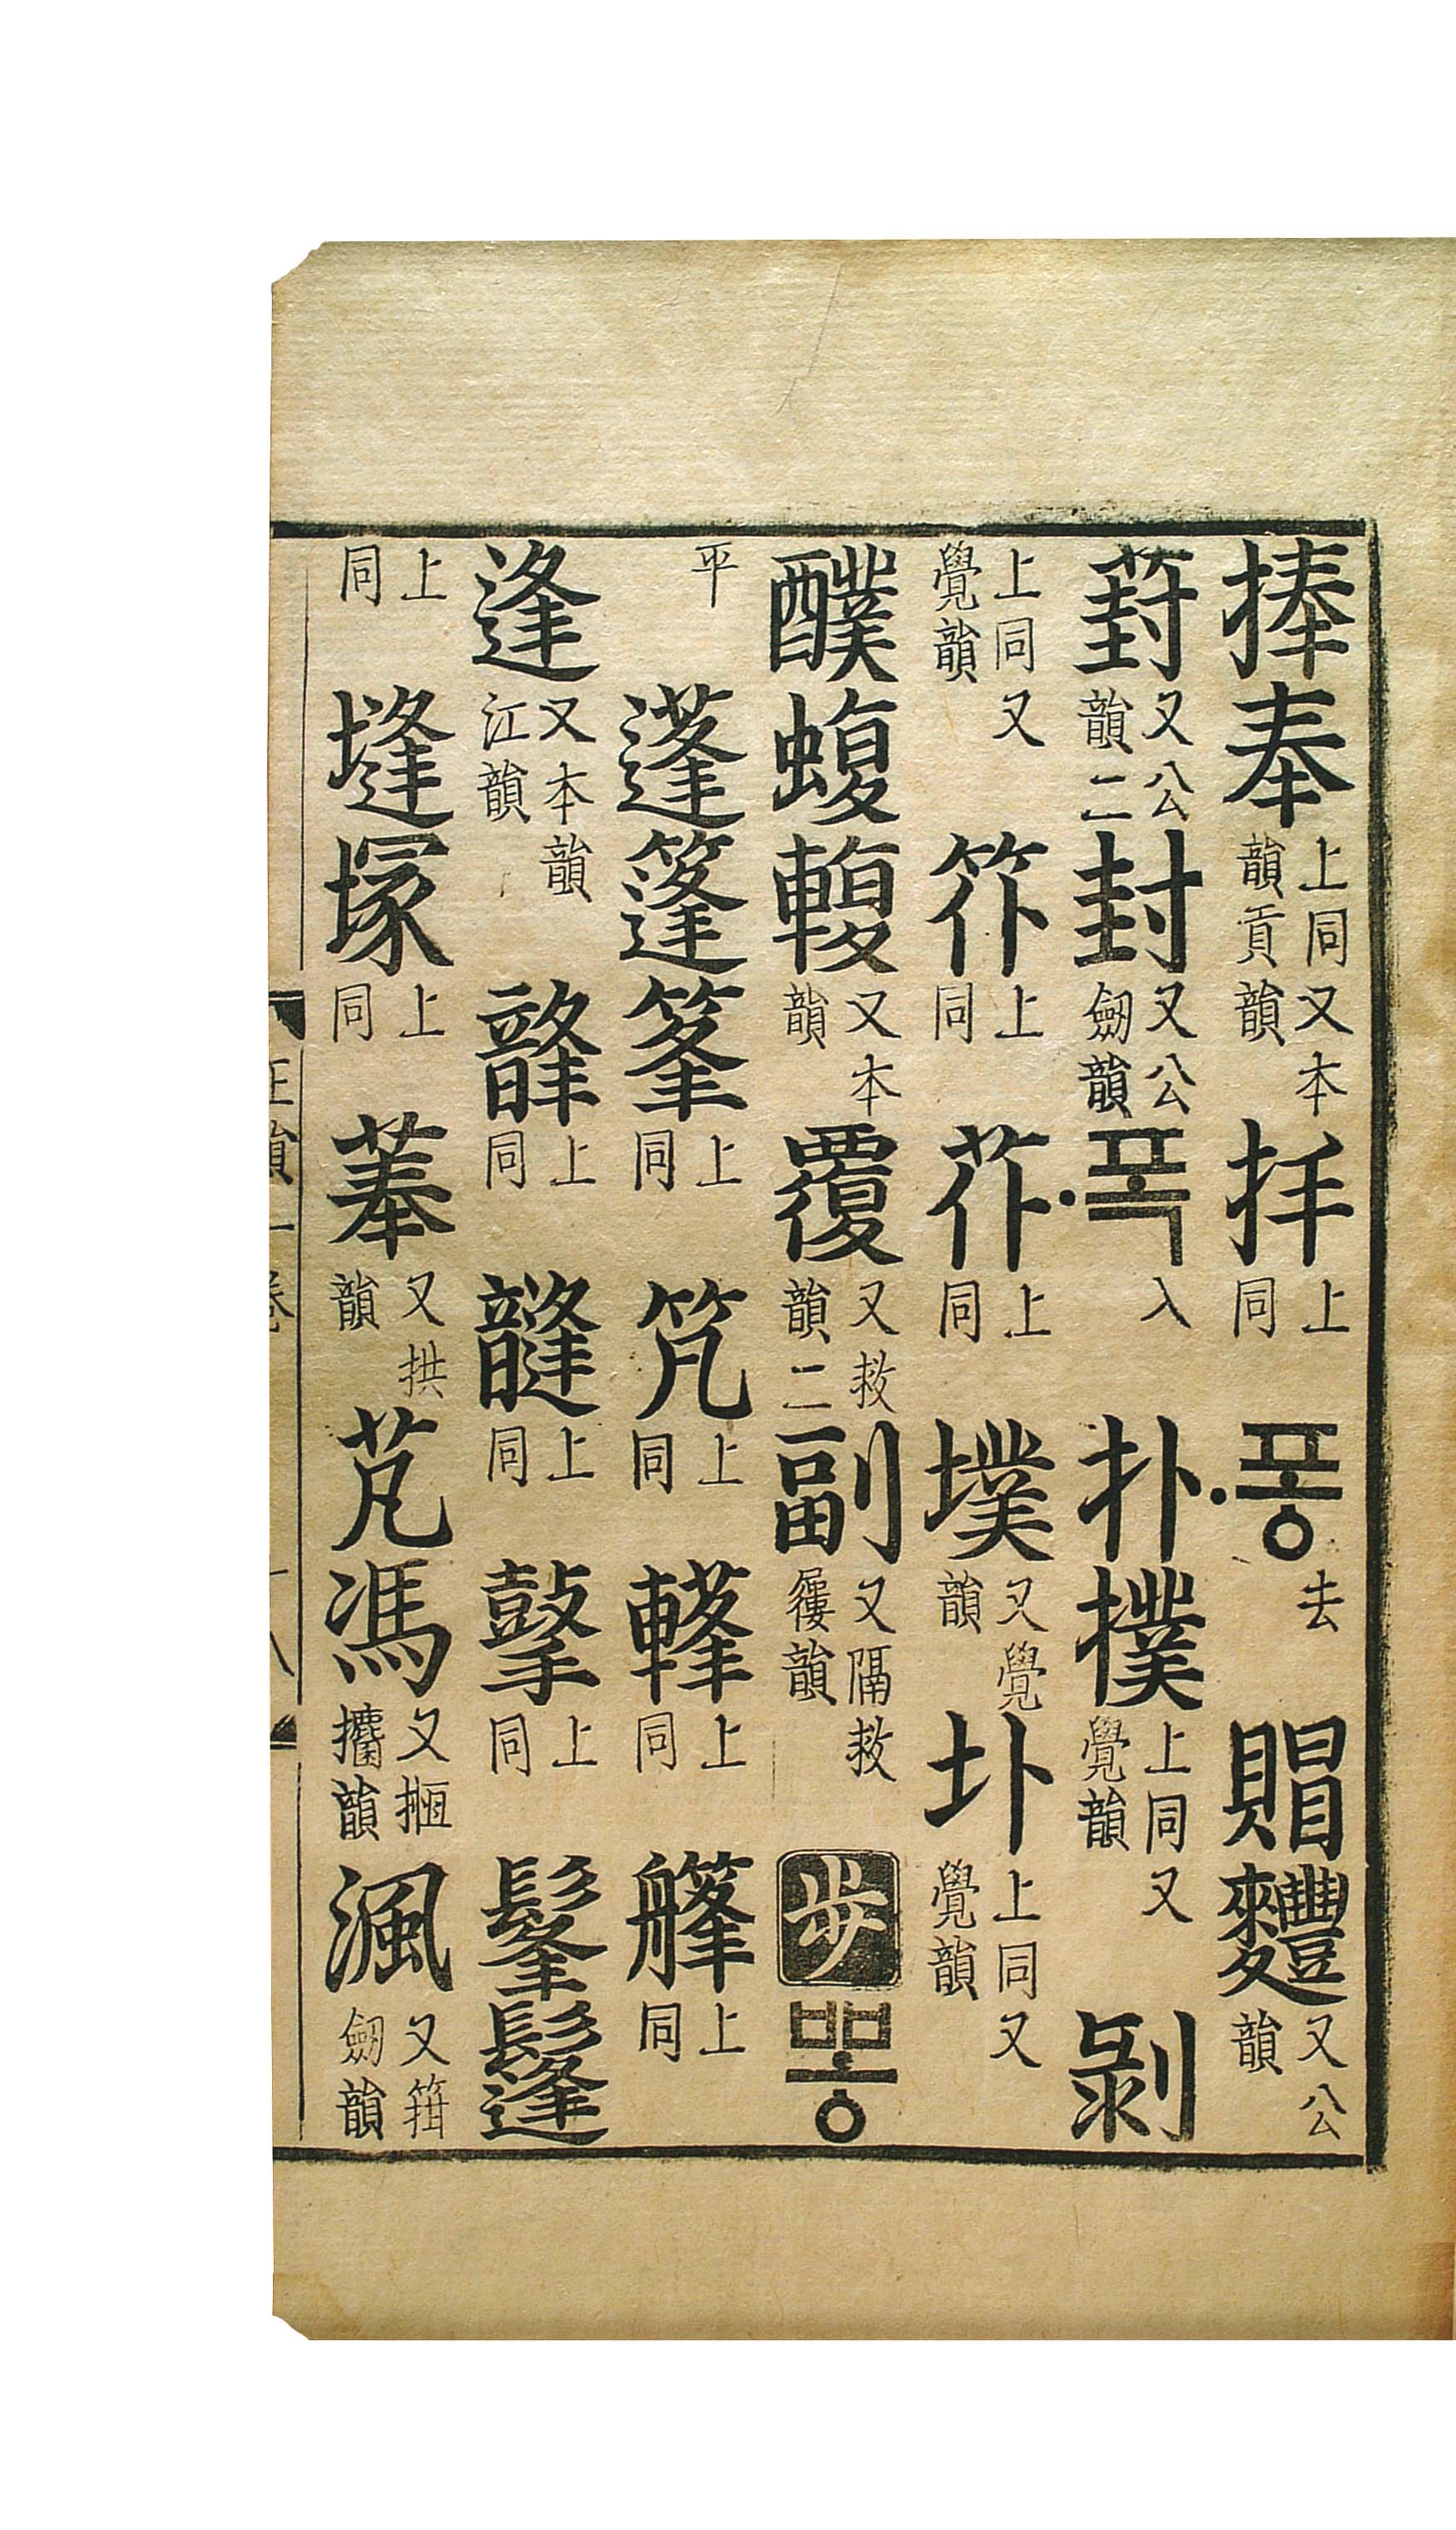 捧奉上同又本韻貢韻上同퐁去賵麷又公韻
葑又公韻二封又公劒韻폭入扑撲上同又覺韻剝
上同又覺韻上同上同墣又覺韻圤上同又覺韻
醭蝮輹又本韻覆又救韻二副又隔救韻步뽕
平蓬篷上同竼上同上同上同
逢又本韻江韻韸上同上同上同髼鬔
上同塳塜上同菶又拱韻芃馮又韻渢又劒韻